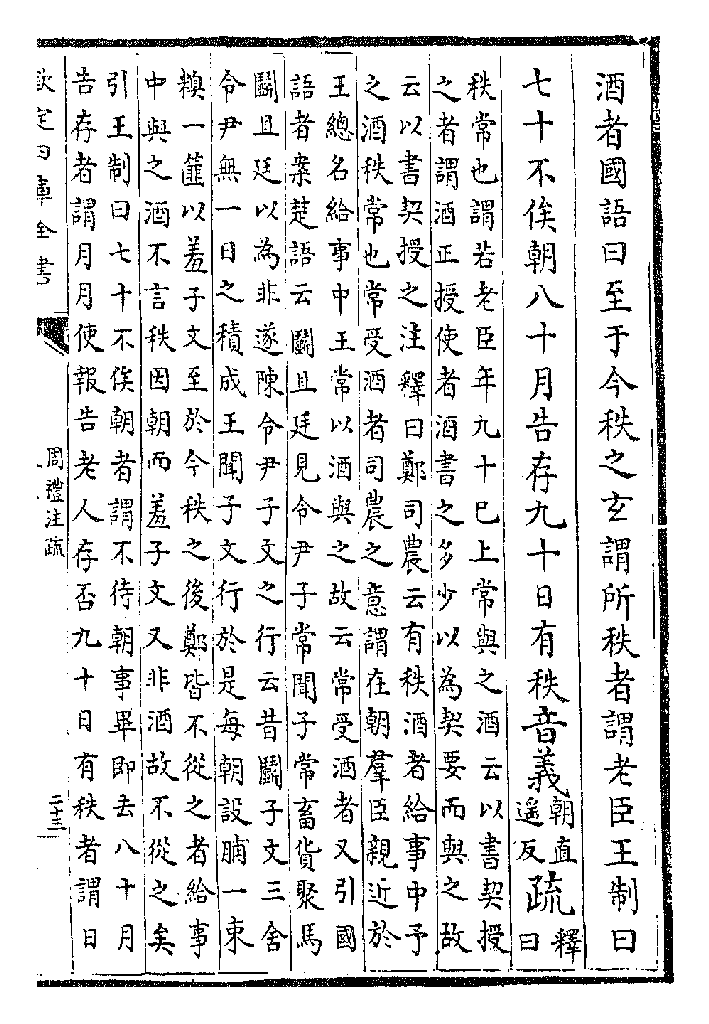 酒者國語曰至于今秩之玄謂所秩者謂老臣王制曰
七十不俟朝八十月告存九十日有秩音義朝直遥反疏釋曰
秩常也謂若老臣年九十已上常與之酒云以書契授
之者謂酒正授使者酒書之多少以為契要而與之故
云以書契授之注釋曰鄭司農云有秩酒者給事中予
之酒秩常也常受酒者司農之意謂在朝羣臣親近於
王總名給事中王常以酒與之故云常受酒者又引國
語者案楚語云鬬且廷見令尹子常聞子常畜貨聚馬
鬬且廷以為非遂陳令尹子文之行云昔鬬子文三舍
令尹無一日之積成王聞子文行於是每朝設脯一束
糗一筐以羞子文至於今秩之後鄭皆不從之者給事
中與之酒不言秩因朝而羞子文又非酒故不從之矣
引王制曰七十不俟朝者謂不待朝事畢即去八十月
告存者謂月月使報告老人存否九十日有秩者謂日
欽定四庫全書
周禮注疏
二十三